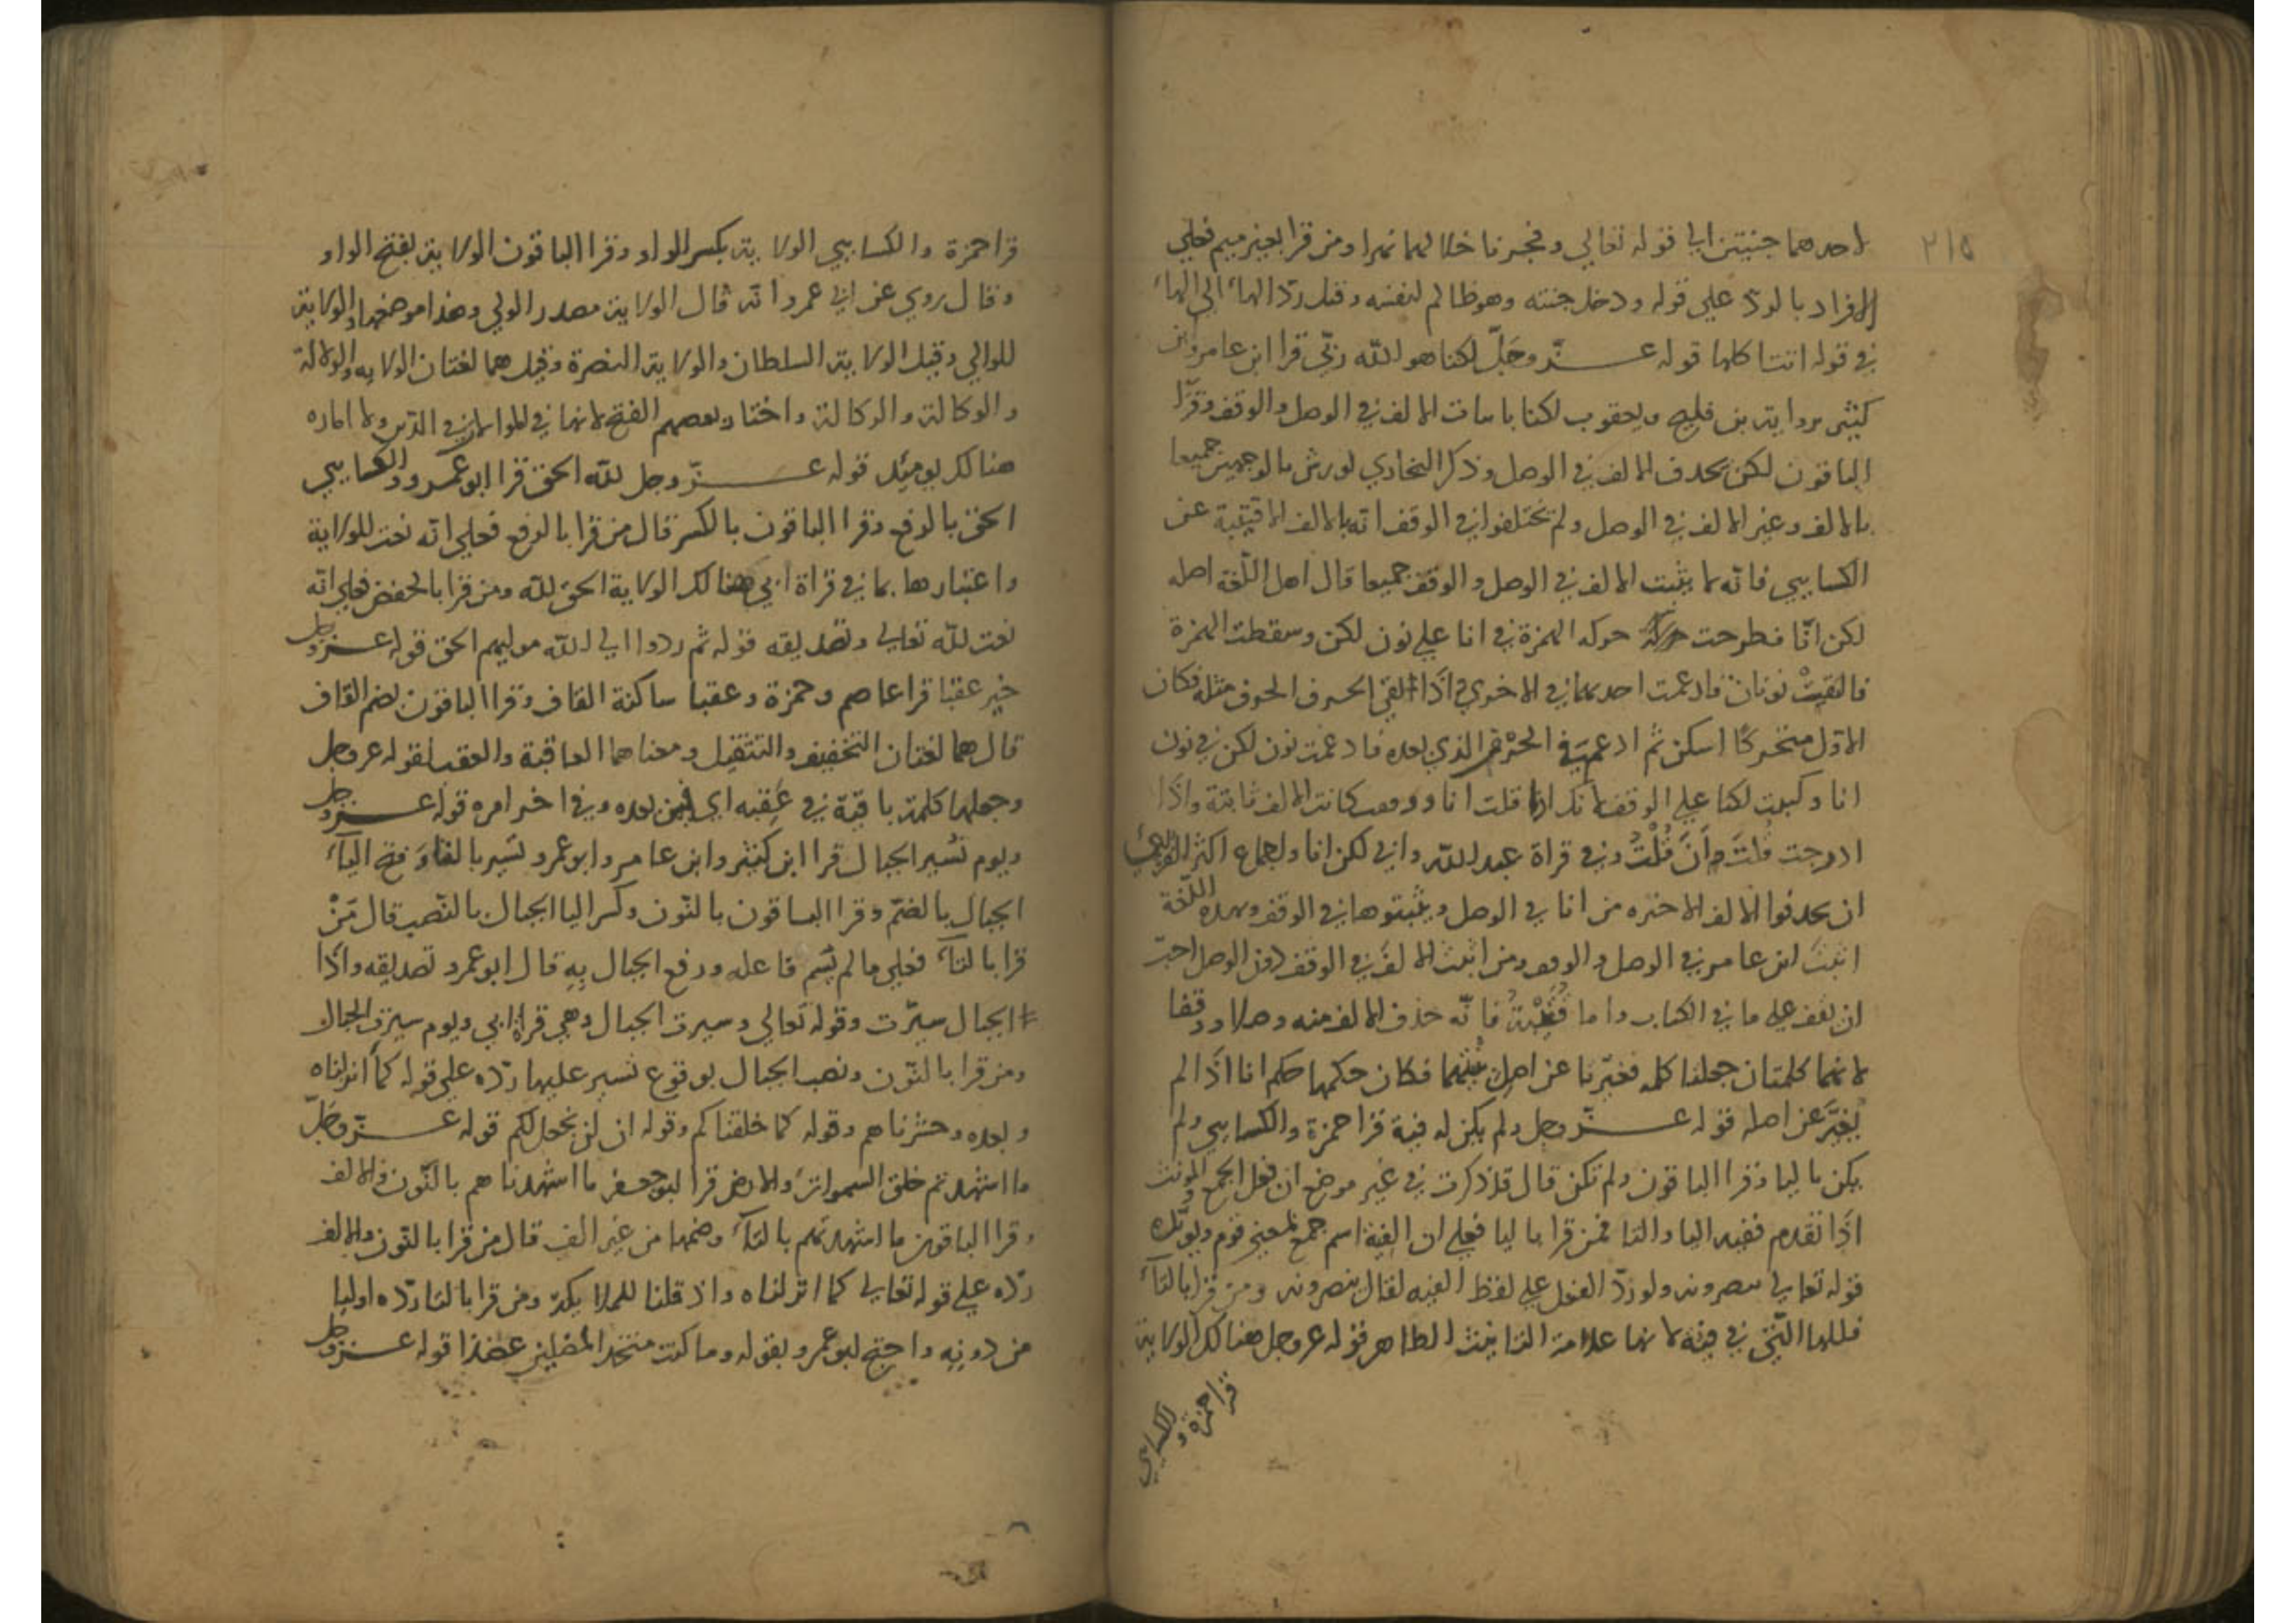 ٢١٥
لاحدهما جنتين الي قوله تعالي وفجرنا خلالهما نهرا ومن قرا بغير ميم فعلي
الافراد بالردّ علي قوله ودخل جنته وهو ظالم لنفسه وقيل ردّ الهاء الي الهاء
في قوله اتتا كلها قوله عزّ وجَلّ لكنا هو الله ربّي قرا ابن عامر وابن
كثير برواية بن فليح ويعقوب لكنا باثبات الالف في الوصل والوقف وقرا
الباقون لكن بحذف الالف في الوصل وذكر البخاري لورش بالوجهين جميعا
بالالف وغير الالف في الوصل ولم يختلفوا في الوقف انه بالالف الا قتيبة عن
الكسايي فانّه لا يثبت الالف في الوصل والوقف جميعا قال اهل اللّغة اصله
لكن انّا فطرحت حركه الهمزة في انا علي نون لكن وسقطت الهمزة
فالتقت نونان فادغمت احديهما في الاخري اذا التقي الحرف الحرف مثله فكان
الاوّل متحركًا اسكن ثم ادغم في الحرف الذي بعده فادغمت نون لكن في نون
انا وكتبت لكنا علي الوقف لانك اذا قلت انا ووقف كانت الالف ثابتة واذا
ادرجت قلت اَنَ قُلْتُ وفي قراة عبد الله وابي لكن انا ولاجماع اكثر
ان يحذفوا الالف الاخيره من انا في الوصل ويثبتوها في الوقف وبهذه اللّغة
اثبت ابن عامر في الوصل والوقف ومن اثبت الالف في الوقف دون الوصل احبّ
ان يقف علي ما في الكتاب واما قُتَيْبَةُ فانّه حذف الالف منه وصلا ووقفا
لانهما كلمتان جعلنا كلمه فغيّرنا عن اصل فكان حكمها حكم انا اذا لم
يُغيَّر عن اصله قوله عزّ وجل ولم يكن له فية قرا حمزة والكسايي ولم
يكن باليا وقرا الباقون ولم تكن قال قد ذكرت في غير موضع ان فعل الجمع والمونث
اذا تقدم ففيه اليا والتا فمن قرا باليا فعلي ان الفية اسم جمع لمعني قوم ويؤيّده
قوله تعالي ينصرونه ولو ردّ الفعل علي لفظ الفيه لقال ينصرونه ومن قرا بالتاء
فللهاء التّي في فيته لانها علامة التانيث الظاهر قوله عز وجل هنالك الولاية
قرا حمزة والكسايي
قرا حمزة والكسايي الولاية بكسر الواو وقرا الباقون الولاية بفتح الواو
وقال روي عن ابي عمرو انّه قال الولاية مصدر الولي وهذا موضعها والولاية
للوالي وقيل الولاية السلطان والولاية النصرة وقيل هما لغتان الولايه والولاية
والوكالة والوكالة واختار بعضهم الفتح لانها في الموالاة في الدّين ولا اماره
هنالك يوميئذ قوله عزّ وجل لله الحق قرا ابو عمرو والكسايي
الحق بالرفع وقرا الباقون بالكسر قال من قرا بالرفع فعلي انّه نعت للولاية
واعتبارها بما في قراة ابي هنالك الولاية الحق لله ومن قرا بالخفض فعلي انّه
نعت لله تعالي وتصديقه قوله ثم ردوا الي الله موليهم الحق قوله عز وجل
خير عقبا قرا عاصم وحمزة وعقبا ساكنة القاف وقرا الباقون بضم القاف
قال هما لغتان التخفيف والتثقيل ومعناهما العاقبة والعقب لقوله عز وجل
وجعلها كلمة باقية في عَقِبه اي فيمن بعده وفي اخر امره قوله عز وجل
ويوم نُسير الجبال قرا ابن كثير وابن عامر وابو عمرو تسير بالتاء وَفتح الياء
الجبال بالضّم وقرا الباقون بالنّون وكسر اليا الجبال بالنّصب قال مَنْ
قرا بالتاء فعلي ما لم يُسم فاعله ورفع الجبال بِهِ قال ابو عمرو تصديقه واذا
الجبال سيّرت وقوله تعالي وسيرت الجبال وهي قراة ابي ويوم سيرت الجبال
ومن قرا بالنّون ونصب الجبال بوقوع نسير عليها ردّه علي قوله كما انزلناه
وبعده وحشرناهم وقوله كما خلقناكم وقوله ان لن نجعل لكم قوله عزّ وجَلّ
ما اشهدتهم خلق السموات والارض قرا ابو جعفر ما اشهدناهم بالنّون والالف
وقرا الباقون ما اشهدتهم بالتاء وضمها من غير الف قال من قرا بالنّون والالف
ردّه علي قوله تعالي كما انزلناه واذ قلنا للملايكة ومن قرا بالتا ردّه اوليا
من دونِه واحتج ابو عمرو بقوله وما كنت متخذ المضلين عضدا قوله عز وجل